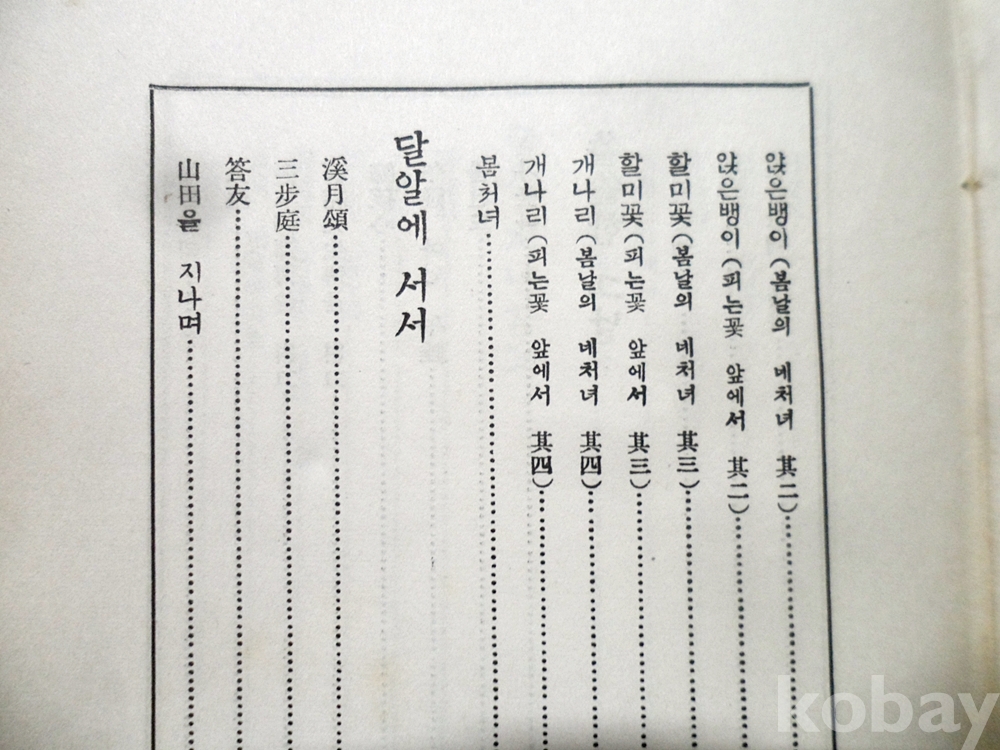 앉은뱅이 (봄날의 네처녀 其二)
앉은뱅이 (피는꽃 앞에서 其二)
할미꽃 (봄날의 네처녀 其三)
할미꽃 (피는꽃 앞에서 其三)
개나리 (봄날의 네처녀 其四)
개나리 (피는꽃 앞에서 其四)
봄처녀
달알에 서서
溪月頌
三步庭
答友
山田을 지나며
kobay